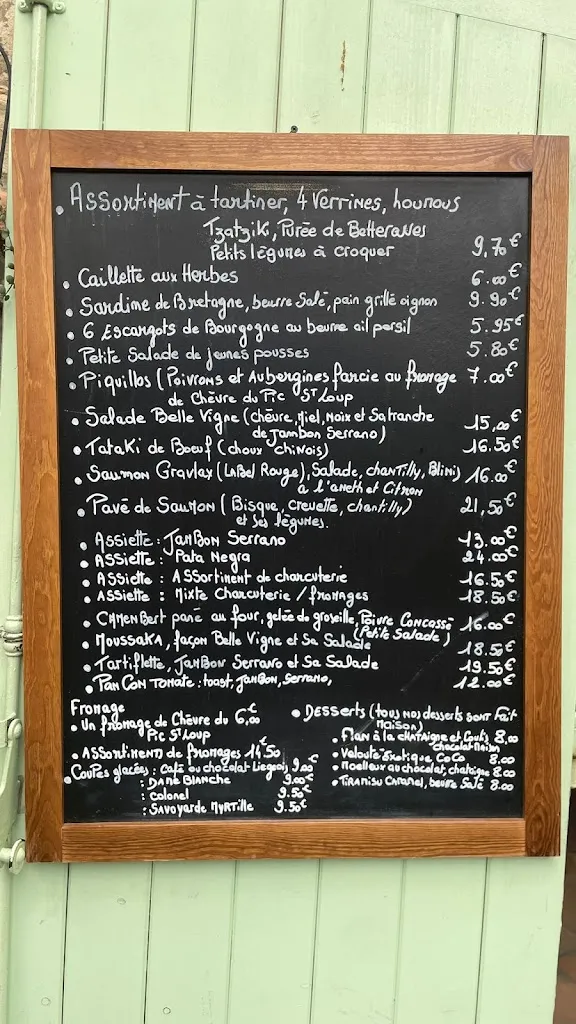 • Assortiment à tartiner, 4 Verrines, houmous
Tzatziki, Purée de Betteraves
Petits légumes à croquer 9,70€
• Caillette aux Herbes 6.00€
• Sardine de Bretagne, beurre Salé, pain grillé oignon 9.90€
• 6 Escargots de Bourgogne au beurre ail persil 5.95€
• Petite Salade de jeunes pousses 5.80€
• Piquillos (Poivrons et Aubergines farcie au fromage 7.00€
de Chèvre du Pic St Loup
• Salade Belle Vigne (chèvre, Miel, Noix et Sa tranche 15,00€
de Jambon Serrano)
• Tataki de Boeuf (choux chinois) 16.50€
• Saumon Gravlax (Label Rouge), Salade, chantilly, Blinis) 16.00€
à l'aneth et Citron
• Pavé de Saumon (Bisque, crevette, chantilly) 21,50€
et ses légumes.
• Assiette : Jambon Serrano 13.00€
• Assiette : Pata Negra 24.00€
• Assiette : Assortiment de charcuterie 16.50€
• Assiette : Mixte Charcuterie / fromages 18.50€
• Camembert pané au four, gelée de groseille, Poivre Concassé 16.00€
(Petite Salade)
• Moussaka, façon Belle Vigne et Sa Salade 18.50€
• Tartiflette, Jambon Serrano et Sa Salade 19.50€
• Pan Con Tomate : toast, Jambon, Serrano, 12.00€
Fromage
• Un fromage de Chèvre du 6,00€
Pic St Loup
• Assortiments de fromages 14,50
• Coupes glacées : Café ou chocolat Liegeois 9,00
: Dame Blanche 9.00€
: Colonel 9.50€
: Savoyarde Myrtille 9.50€
• Desserts (tous nos desserts sont Fait
Maison)
• Flan à la chataigne et Coulis 8,00
chocolat Maison
• Velouté Exotique Coco 8.00
• Moelleux au chocolat, chataigne 8.00
• Tiramisu Caramel, beurre Salé 8.00